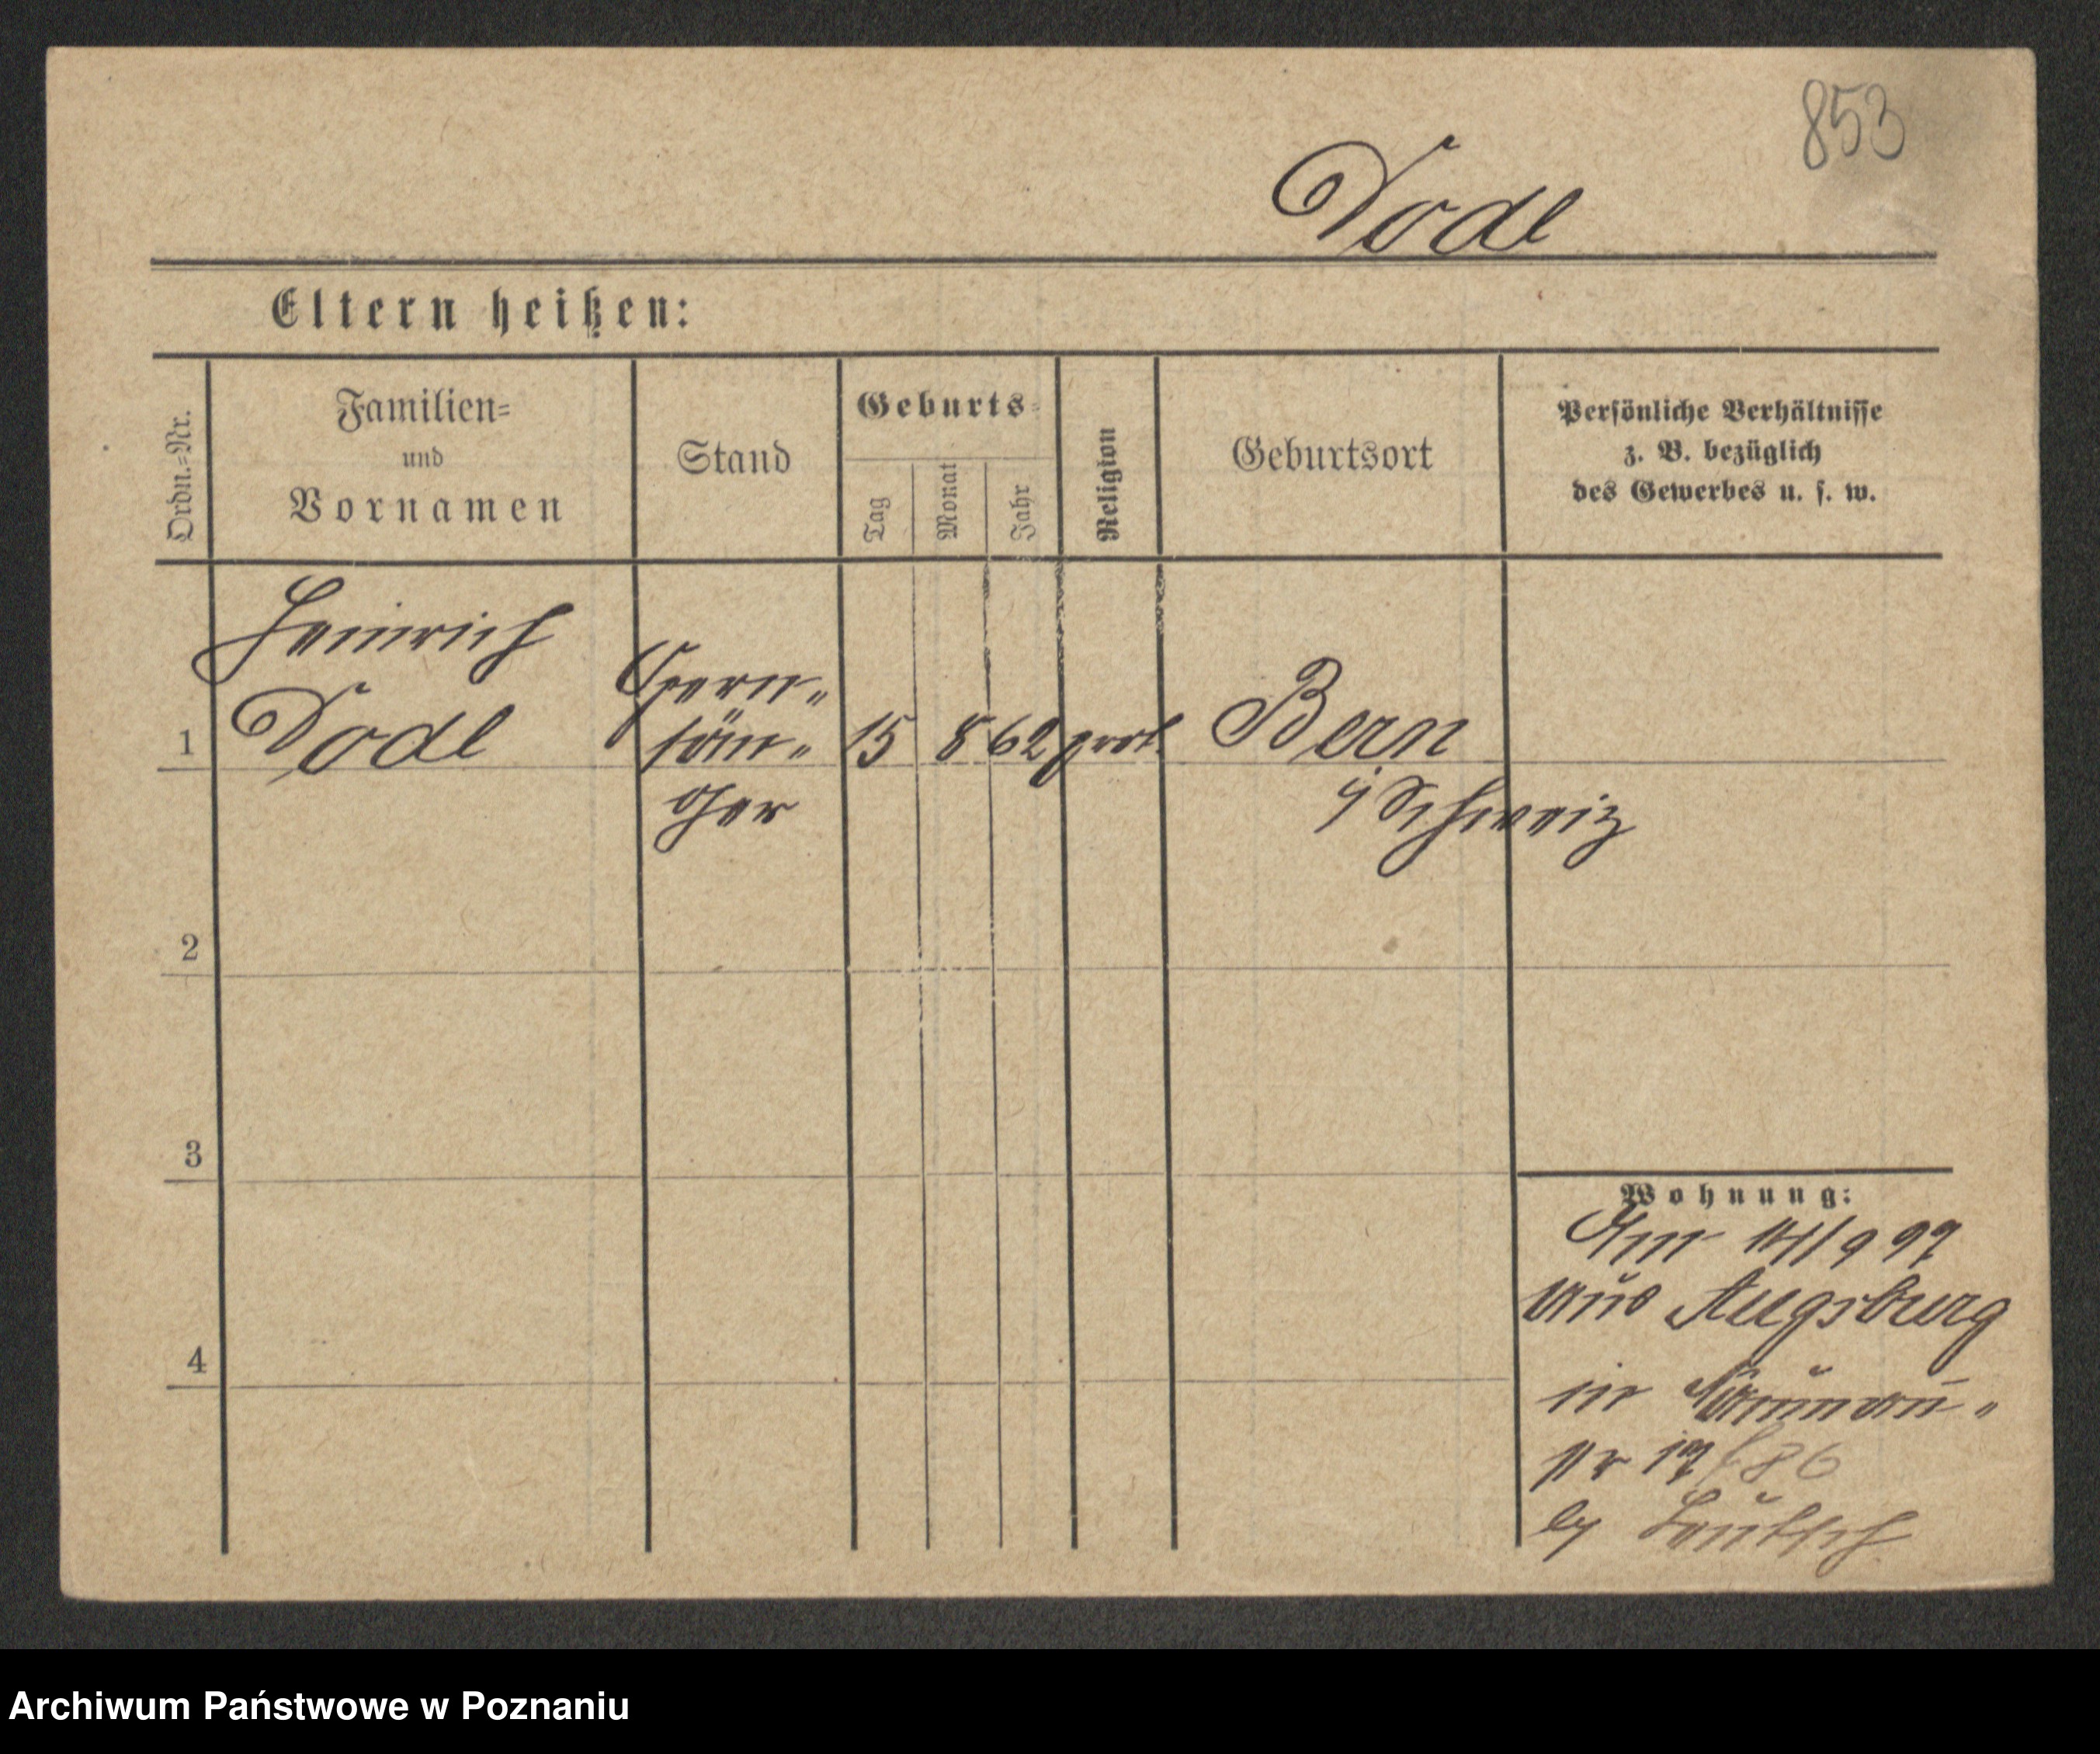 853
Dodl
Eltern heißen:
Ordn.=Nr.
Familien=
und
Vornamen
Stand
Geburts=
Tag
Monat
Jahr
Religion
Geburtsort
Persönliche Verhältnisse
z. B. bezüglich
des Gewerbes u. s. w.
Heinrich
Dodl
Opern=
sän=
ger
1
15 8 62 prot.
Bern
i/Schweiz
2
3
4
Wohnung:
Am 14/9 97
aus Augsburg
in
Nr 17
by
Archiwum Państwowe w Poznaniu